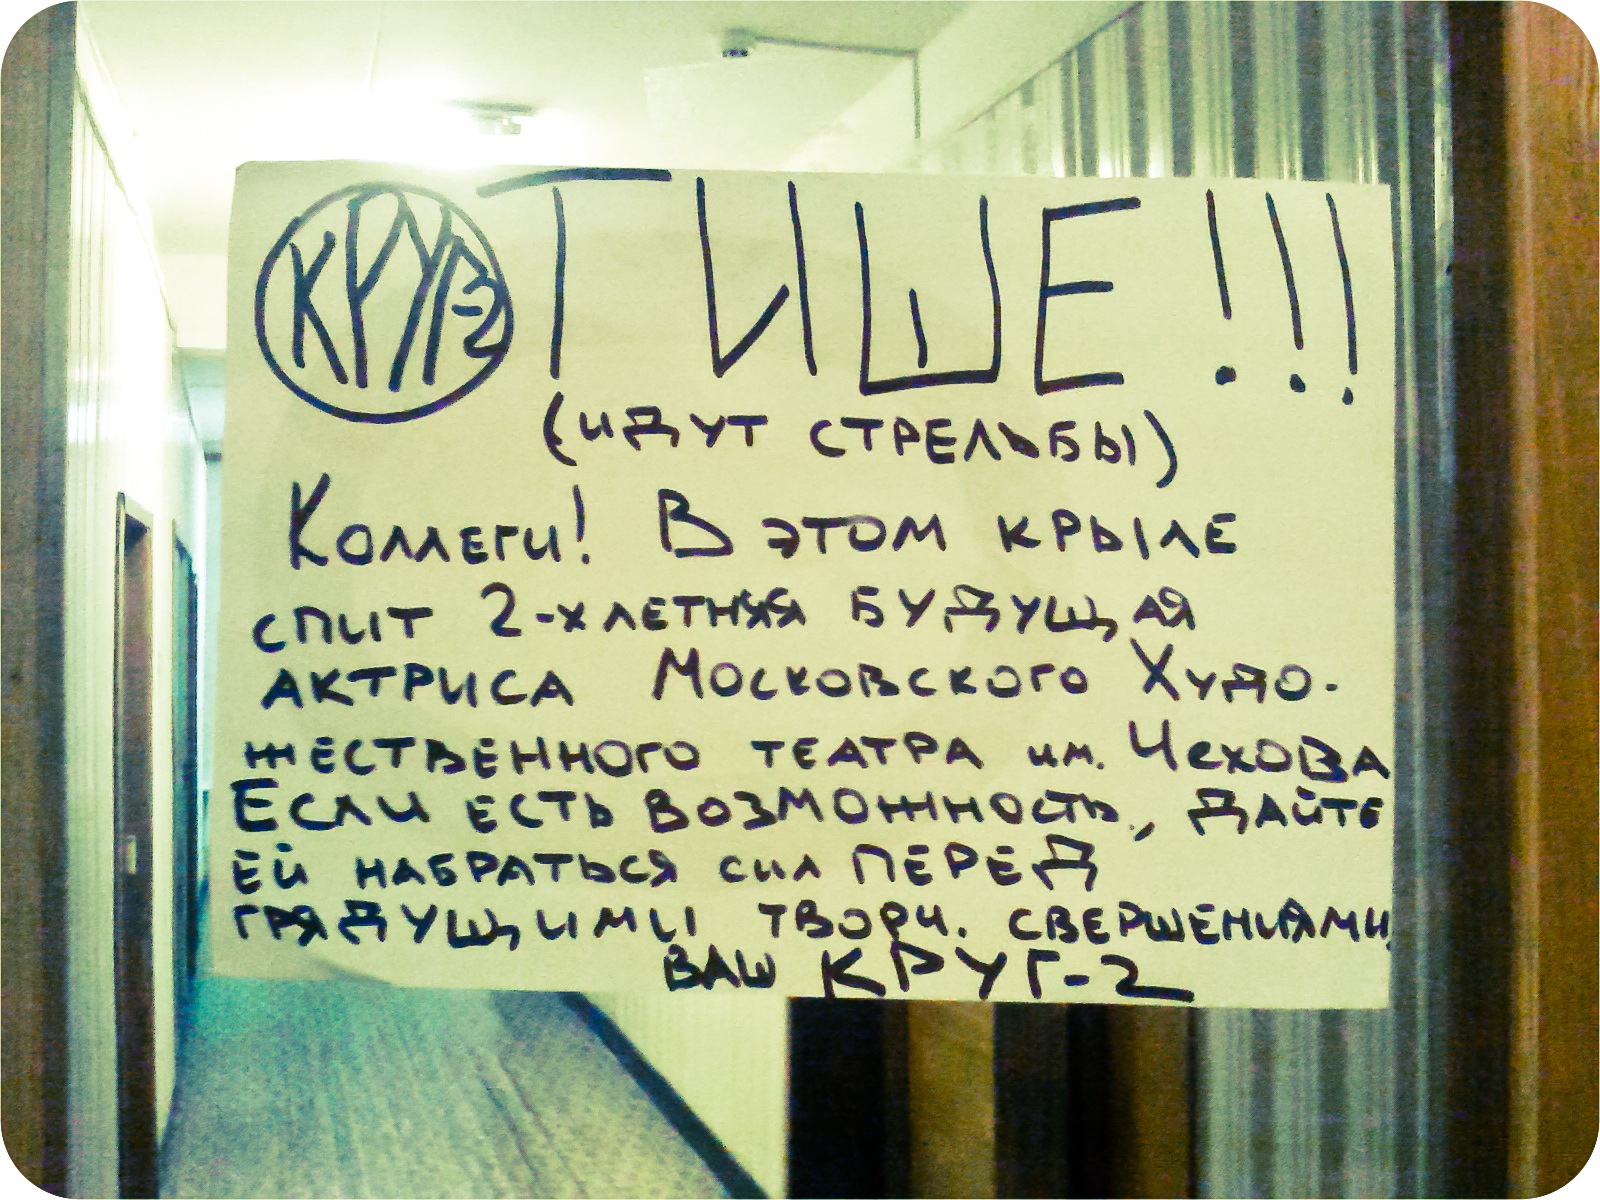 КРУГ-2
ТИШЕ!!!
(ИДУТ СТРЕЛЬБЫ)
Коллеги! В этом крыле
спит 2-х летняя будущая
актриса Московского Худо-
жественного театра им. Чехова
Если есть возможность, дайте
ей набраться сил перед
грядущими творч. свершениями
ВАШ КРУГ-2